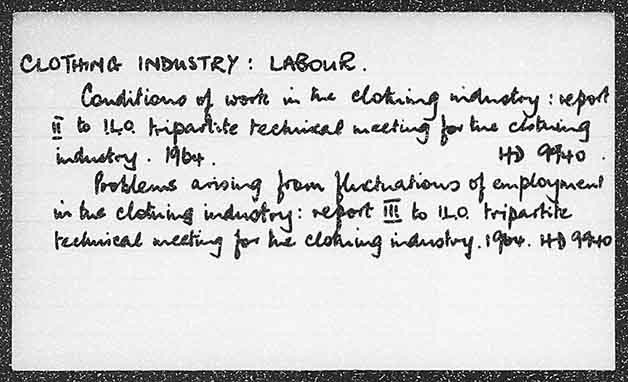 CLOTHING INDUSTRY: LABOUR.
Conditions of work in the clothing industry: report
II to I.L.O. tripartite technical meeting for the clothing
industry. 1964. HD 9940.
Problems arising from fluctuations of employment
in the clothing industry: report III to I.L.O. tripartite
technical meeting for the clothing industry. 1964. HD 9940